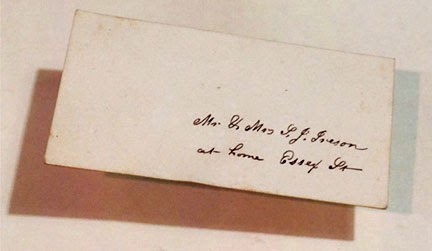 Mr & Mrs S. J. Ireson
at home Essex St